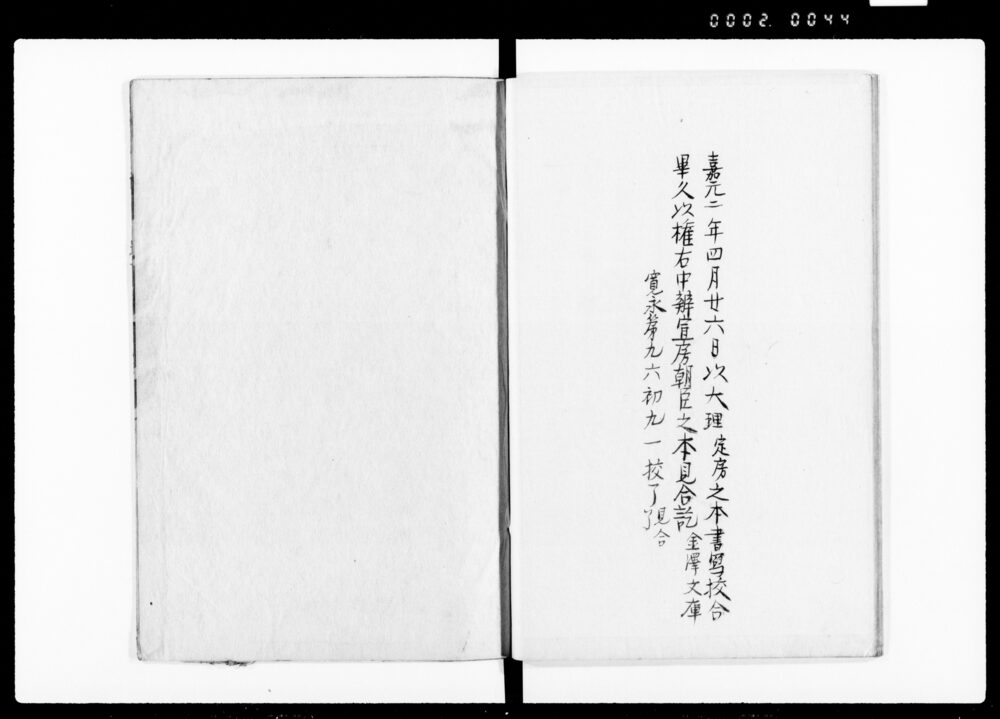 0002. 0044
嘉元二年四月廿六日以大理定房之本書写校合
畢久以権右中辨宣房朝臣之本見合訖
金澤文庫
寛永第九六初九一挍了
見合了